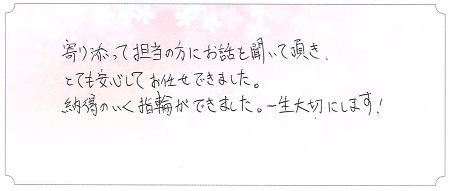 寄り添って担当の方にお話を聞いて頂き、
とても安心してお任せできました。
納得のいく指輪ができました。一生大切にします!